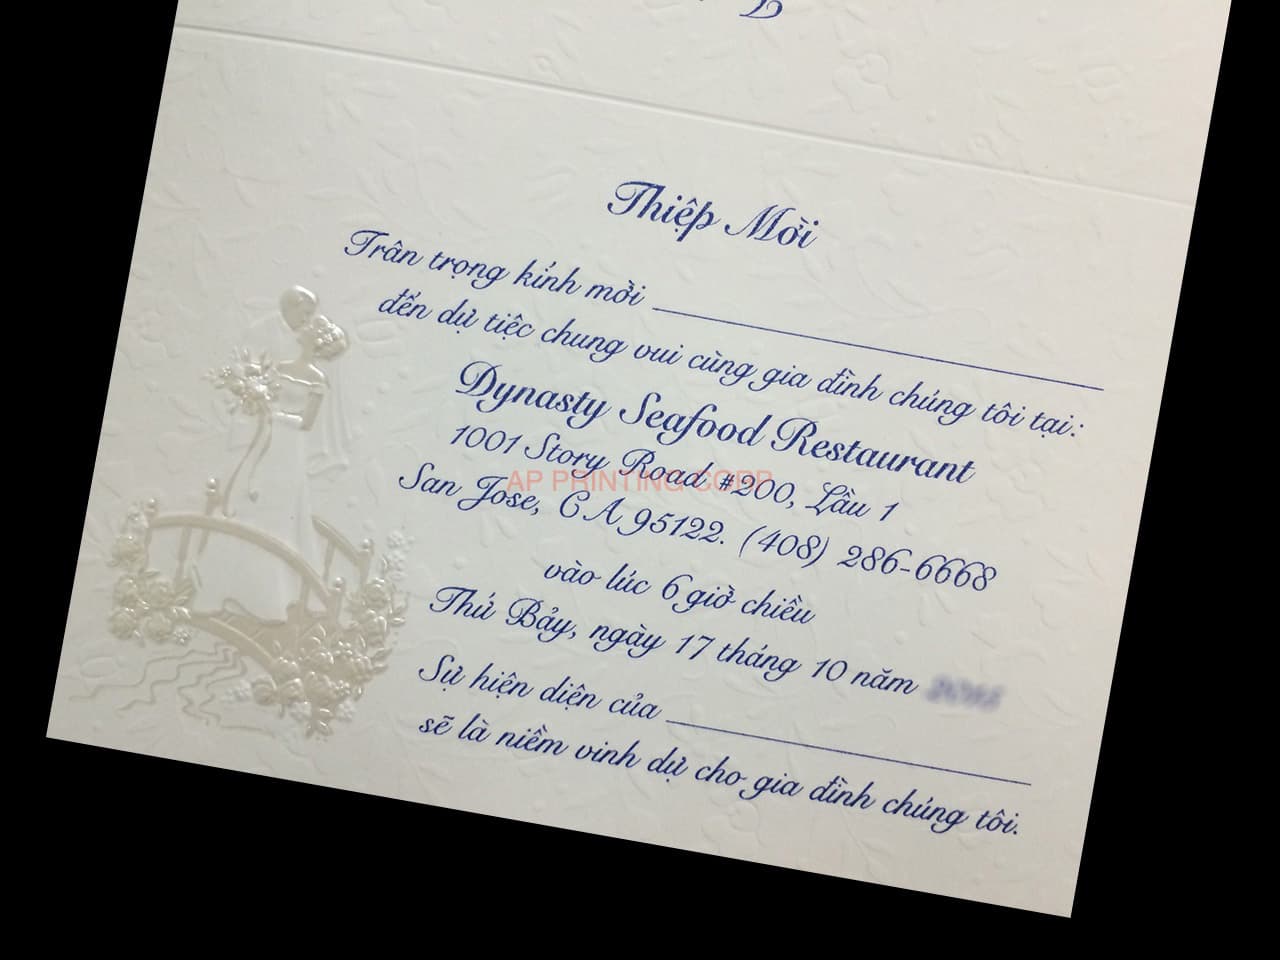 Thiệp Mời
Trân trọng kính mời
đến dự tiệc chung vui cùng gia đình chúng tôi tại:
Dynasty Seafood Restaurant
1001 Story Road #200, Lầu 1
AP PRINTING CORP
San Jose, CA 95122. (408) 286-6668
vào lúc 6 giờ chiều
Thứ Bảy, ngày 17 tháng 10 năm
Sự hiện diện của
sẽ là niềm vinh dự cho gia đình chúng tôi.